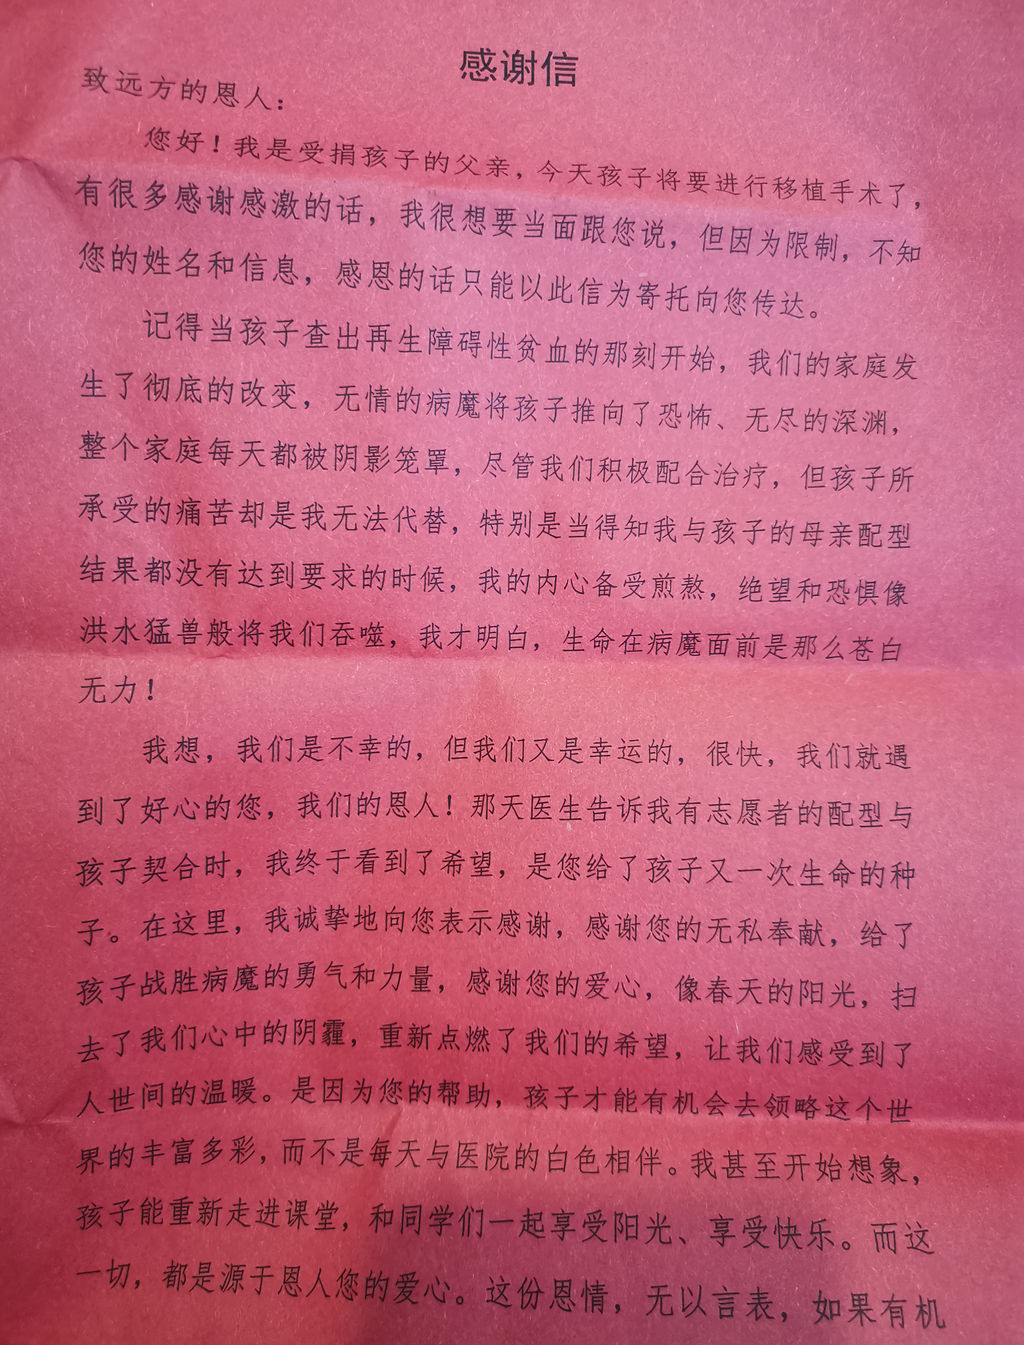 感谢信
致远方的恩人：
您好！我是受捐孩子的父亲，今天孩子将要进行移植手术了，
有很多感谢感激的话，我很想要当面跟您说，但因为限制，不知
您的姓名和信息，感恩的话只能以此信为寄托向您传达。
记得当孩子查出再生障碍性贫血的那刻开始，我们的家庭发
生了彻底的改变，无情的病魔将孩子推向了恐怖、无尽的深渊，
整个家庭每天都被阴影笼罩，尽管我们积极配合治疗，但孩子所
承受的痛苦却是我无法代替，特别是当得知我与孩子的母亲配型
结果都没有达到要求的时候，我的内心备受煎熬，绝望和恐惧像
洪水猛兽般将我们吞噬，我才明白，生命在病魔面前是那么苍白
无力！
我想，我们是不幸的，但我们又是幸运的，很快，我们就遇
到了好心的您，我们的恩人！那天医生告诉我有志愿者的配型与
孩子契合时，我终于看到了希望，是您给了孩子又一次生命的种
子。在这里，我诚挚地向您表示感谢，感谢您的无私奉献，给了
孩子战胜病魔的勇气和力量，感谢您的爱心，像春天的阳光，扫
去了我们心中的阴霾，重新点燃了我们的希望，让我们感受到了
人世间的温暖。是因为您的帮助，孩子才能有机会去领略这个世
界的丰富多彩，而不是每天与医院的白色相伴。我甚至开始想象，
孩子能重新走进课堂，和同学们一起享受阳光、享受快乐。而这
一切，都是源于恩人您的爱心。这份恩情，无以言表，如果有机